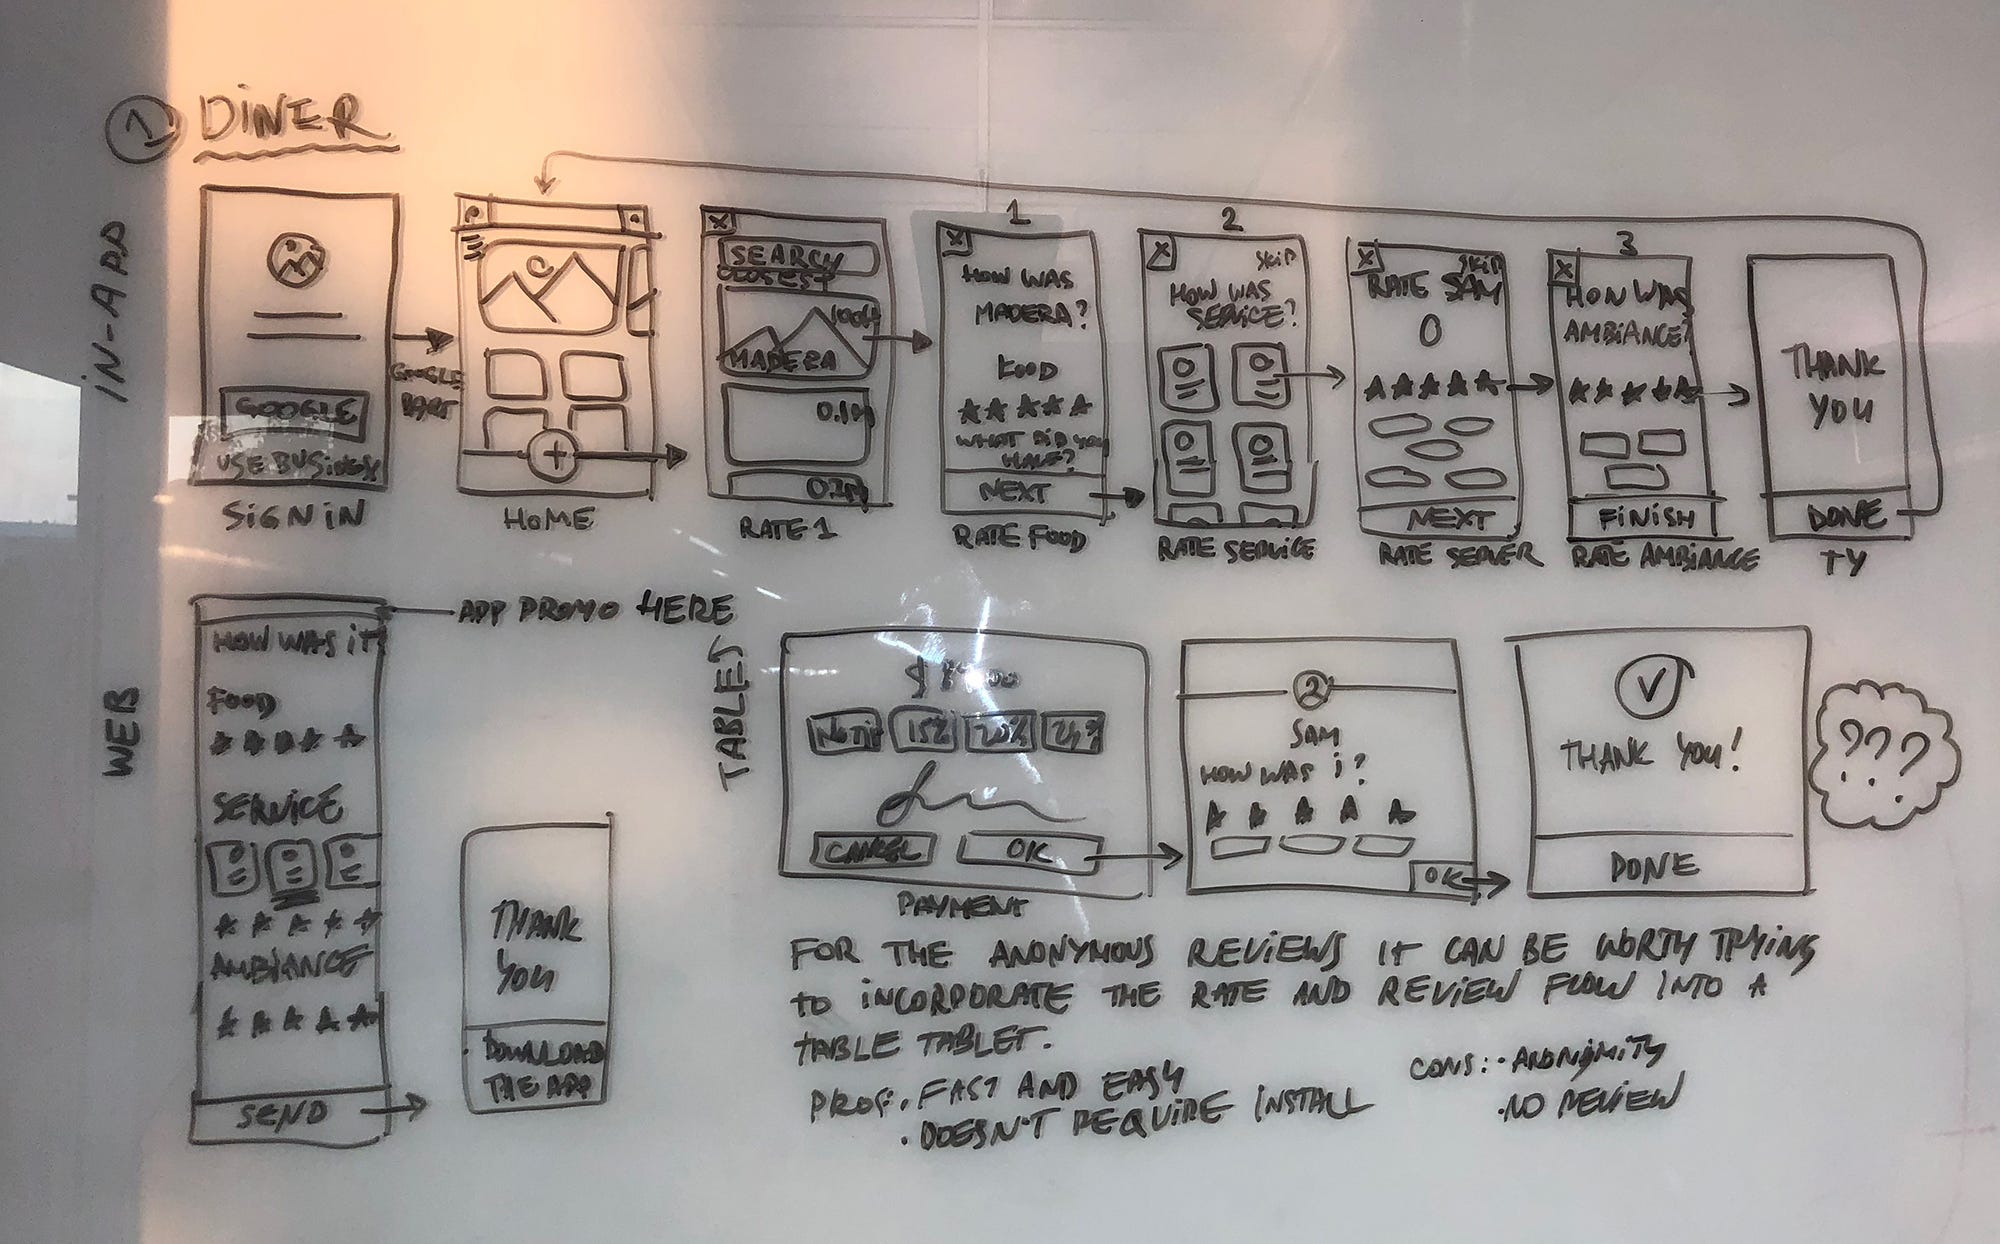 1 DINER
IN-APP
GOOGLE
USE BUSINESS
SIGN IN
GOOGLE
+
HOME
X
SEARCH
CLOSEST
100ft
MADERA
0.1m
0.2m
RATE 1
1
X
HOW WAS
MADERA?
FOOD
WHAT DID YOU
HAVE?
NEXT
RATE FOOD
2
X
SKIP
HOW WAS
SERVICE?
RATE SERVICE
X
SKIP
RATE SAM
NEXT
RATE SERVER
3
X
HOW WAS
AMBIANCE?
FINISH
RATE AMBIANCE
THANK
YOU
DONE
TY
WEB
APP PROMO HERE
HOW WAS IT
FOOD
SERVICE
AMBIANCE
SEND
THANK
YOU
DOWNLOAD
THE APP
TABLES
$
NO TIP 15% 20%
CANCEL OK
PAYMENT
2
SAM
HOW WAS I?
OK
THANK YOU!
DONE
???
FOR THE ANONYMOUS REVIEWS IT CAN BE WORTH TRYING
TO INCORPORATE THE RATE AND REVIEW FLOW INTO A
TABLE TABLET.
PROS: • FAST AND EASY
• DOESN'T REQUIRE INSTALL
CONS: • ANONIMITY
• NO REVIEW